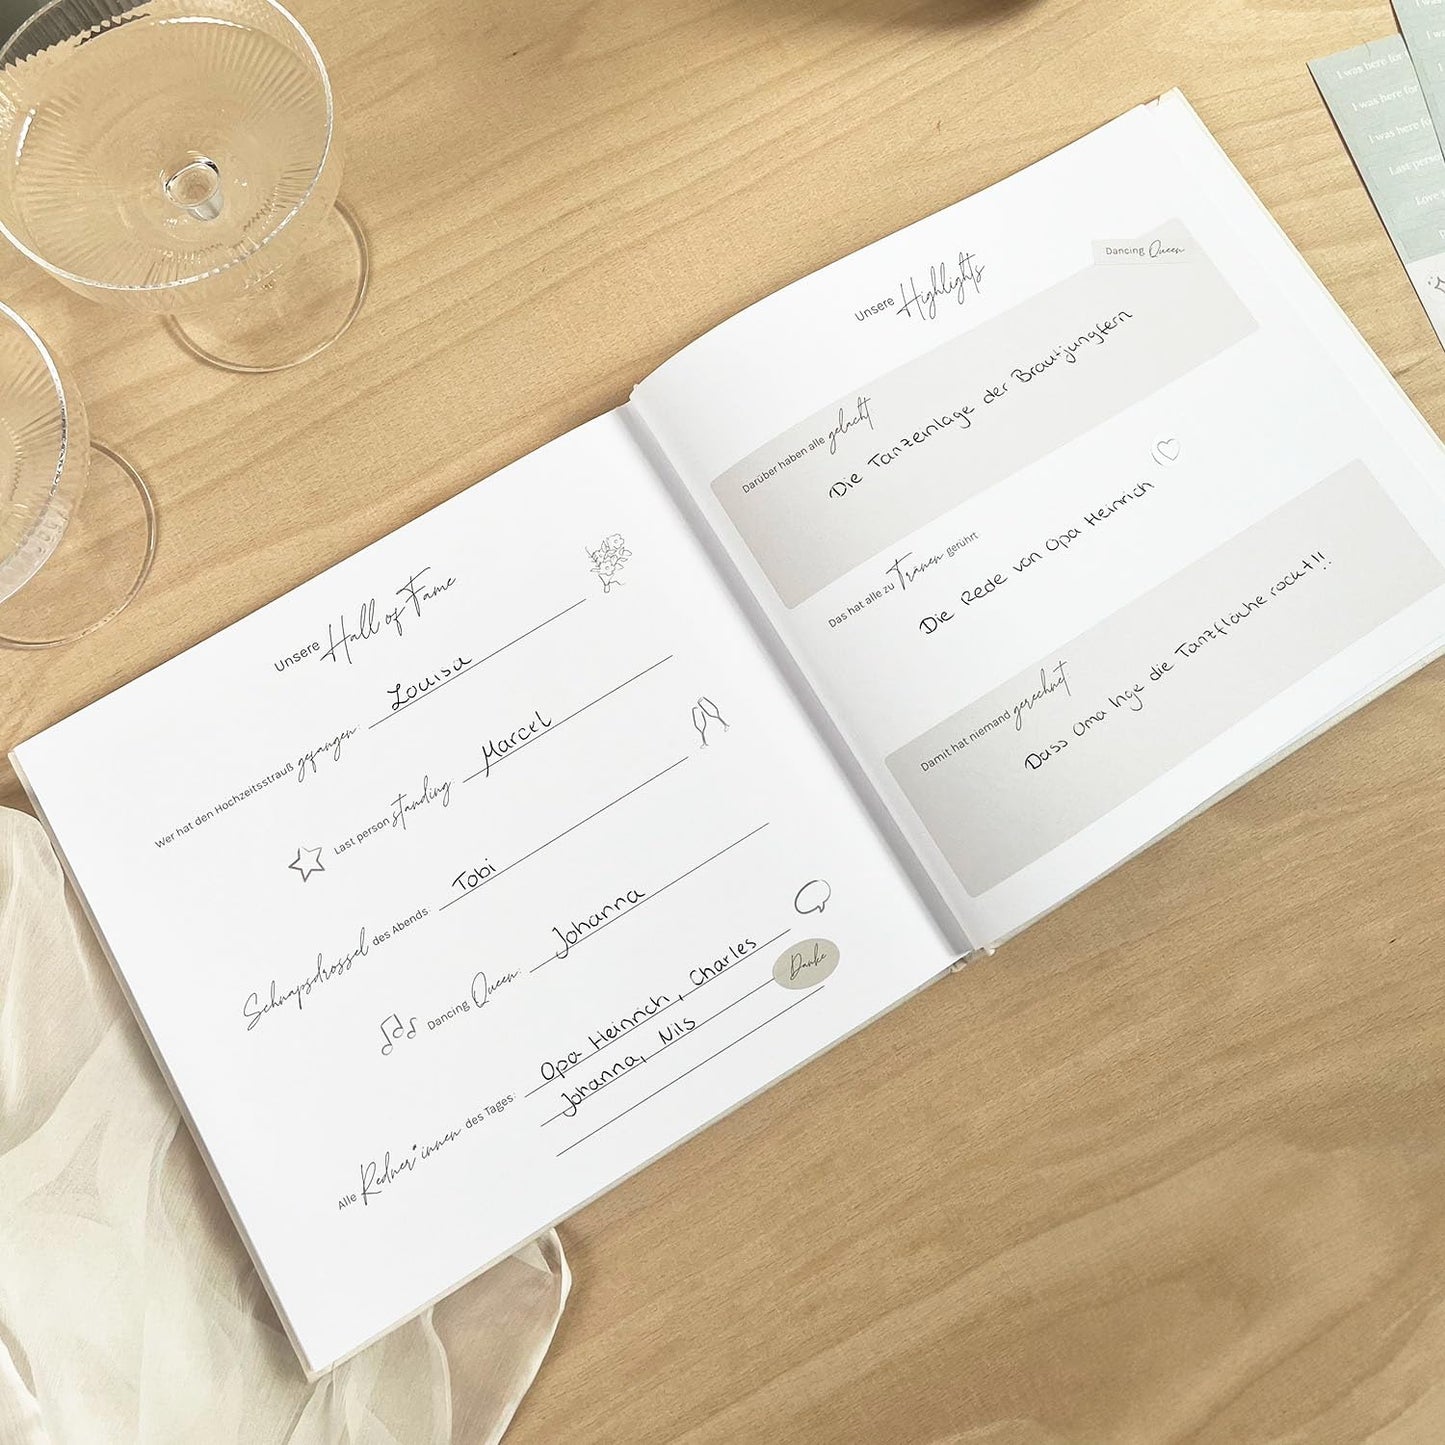 Unsere Hall of Fame
Wer hat den Hochzeitsstrauß gefangen: Louisa
Last person standing Marcel
Schnapsdrossel des Abends: Tobi
Dancing Queen: Johanna
Alle Redner*innen des Tages: Opa Heinrich, Charles
Johanna, Nils
Danke
Unsere Highlights
Dancing Queen
Darüber haben alle gelacht
Die Tanzeinlage der Brautjungfern
Das hat alle zu Tränen gerührt
Die Rede von Opa Heinrich
Damit hat niemand gerechnet
Dass Oma Inge die Tanzfläche rockt!!
I was here for
I was here for
I was here fo
Last perso
Love
I was
I w